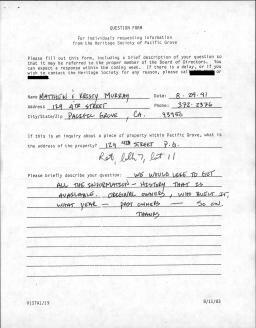 QUESTION FORM
For individuals requesting information
from the Heritage Society of Pacific Grove
Please fill out this form, including a brief description of your question so
that it may be referred to the proper member of the Board of Directors. You
can expect a response within the coming week. If there is a delay, or if you
wish to contact the Heritage Society for any reason, please call or
Name MATTHEW & KRISSY MURRAY Date: 8-29-91
Address 129 4TH STREET Phone: 372-2376
City/State/Zip PACIFIC GROVE, CA. 93950
If this is an inquiry about a piece of property within Pacific Grove, what is
the address of the property? 129 4TH STREET P.G.
lot 11
Please briefly describe your question: WE WOULD LIKE TO GET
ALL THE INFORMATION - HISTORY THAT IS
AVAILABLE. ORIGINAL OWNERS, WHO BUILT IT,
WHAT YEAR - PAST OWNERS - SO ON.
THANKS
8/11/83